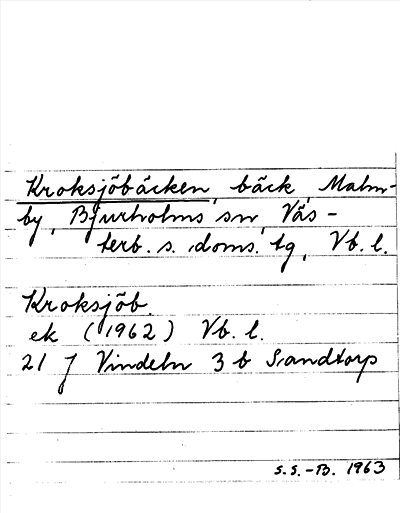 Kroksjöbäcken, bäck, Malm-
by, Bjurholms sn, Väs-
terb. s. doms. tg, Vb. l.
Kroksjöb.
ek (1962) Vb. l.
21 J Vindeln 3 b Sandtorp
S.S.-B. 1963